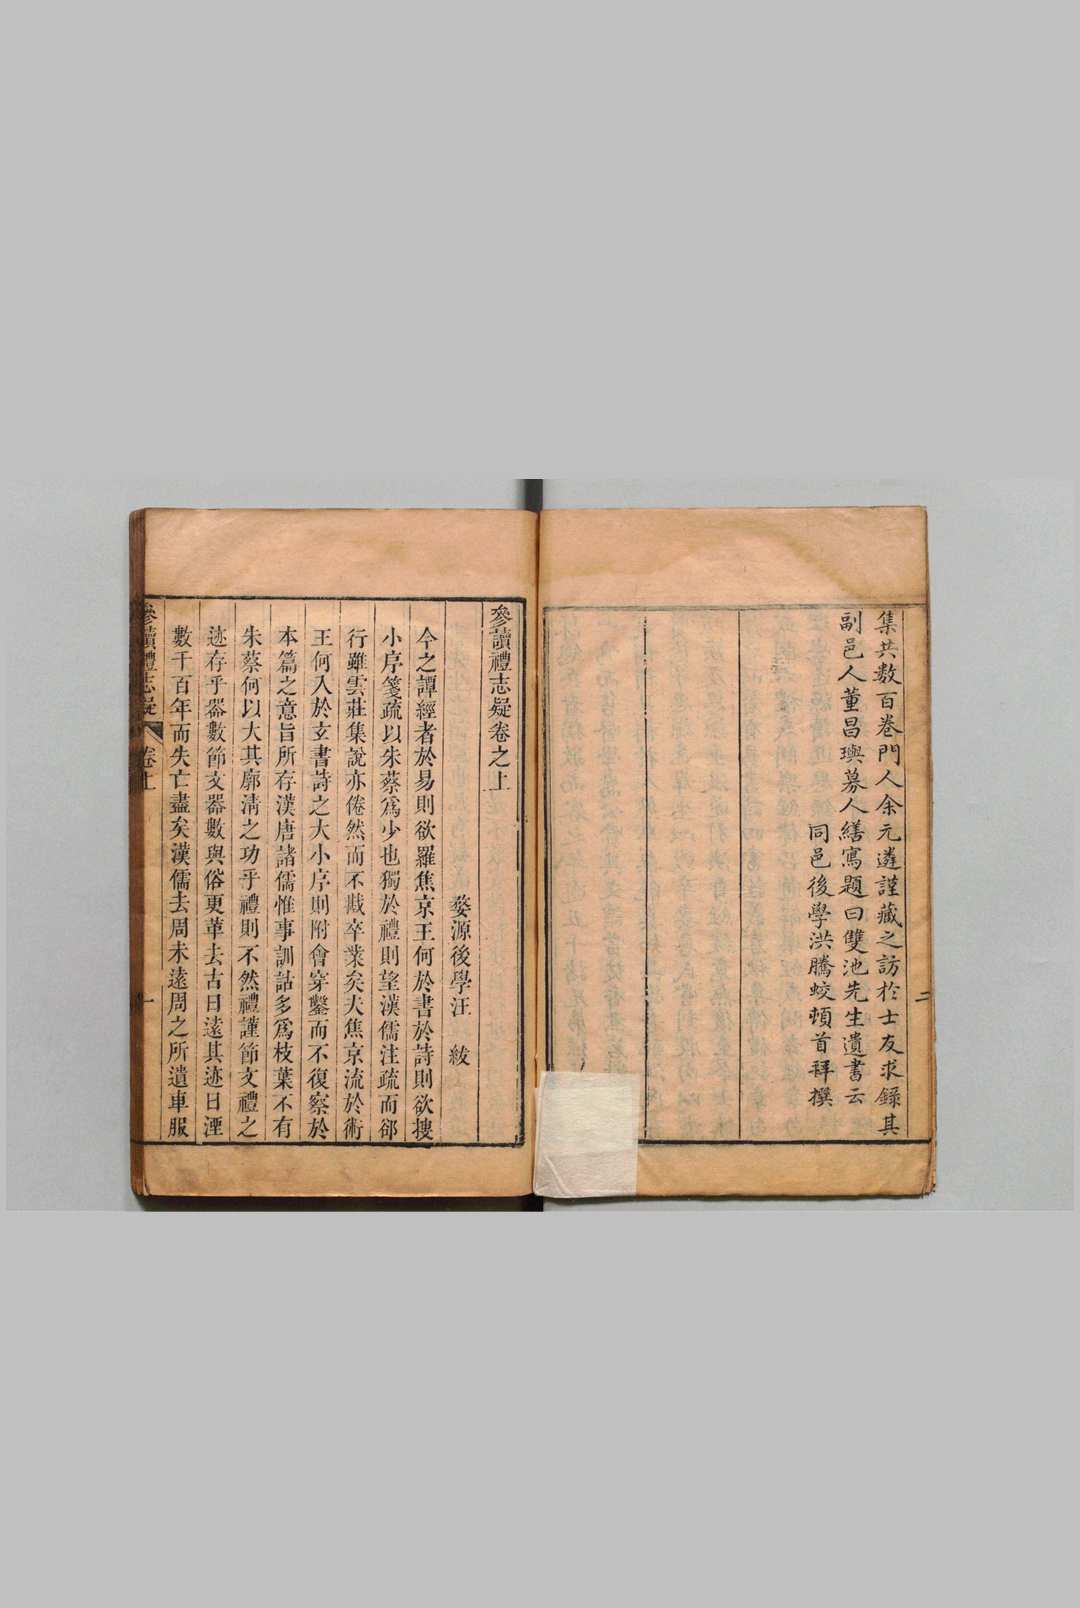 集共数百巻門人余元遴謹藏之訪於士友求錄其
副邑人董昌璵募人繕寫題曰雙池先生遺書云
同邑後學洪騰蛟頓首拜撰
二
參讀禮志疑卷之上
婺源後學汪 紱
今之譚經者於易則欲羅焦京王何於書於詩則欲搜
小序箋疏以朱蔡爲少也獨於禮則望漢儒注疏而郤
行雖雲莊集說亦倦然而不戡卒業矣夫焦京流於術
王何入於玄書詩之大小序則附會穿鑿而不復察於
本篇之意旨所存漢唐諸儒惟事訓詁多爲枝葉不有
朱蔡何以大其廓清之功乎禮則不然禮謹節文禮之
迹存乎器數節文器數與俗更革去古日遠其迹日湮
數千百年而失亡盡矣漢儒去周未遠周之所遺車服
參讀禮志疑 卷上 一